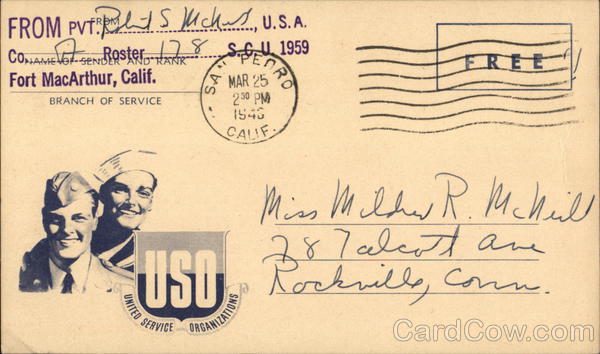 FROM PVT. Robert S McNeil, U.S.A.
FROM
Co. A Roster 178 S.C.U. 1959
NAME OF SENDER AND RANK
Fort MacArthur, Calif.
BRANCH OF SERVICE
SAN PEDRO
MAR 25
2 30 PM
1946
CALIF.
FREE
Miss Mildred R. McNeill
28 Talcott Ave
Rockville, Conn.
USO
UNITED SERVICE ORGANIZATIONS
CardCow.com